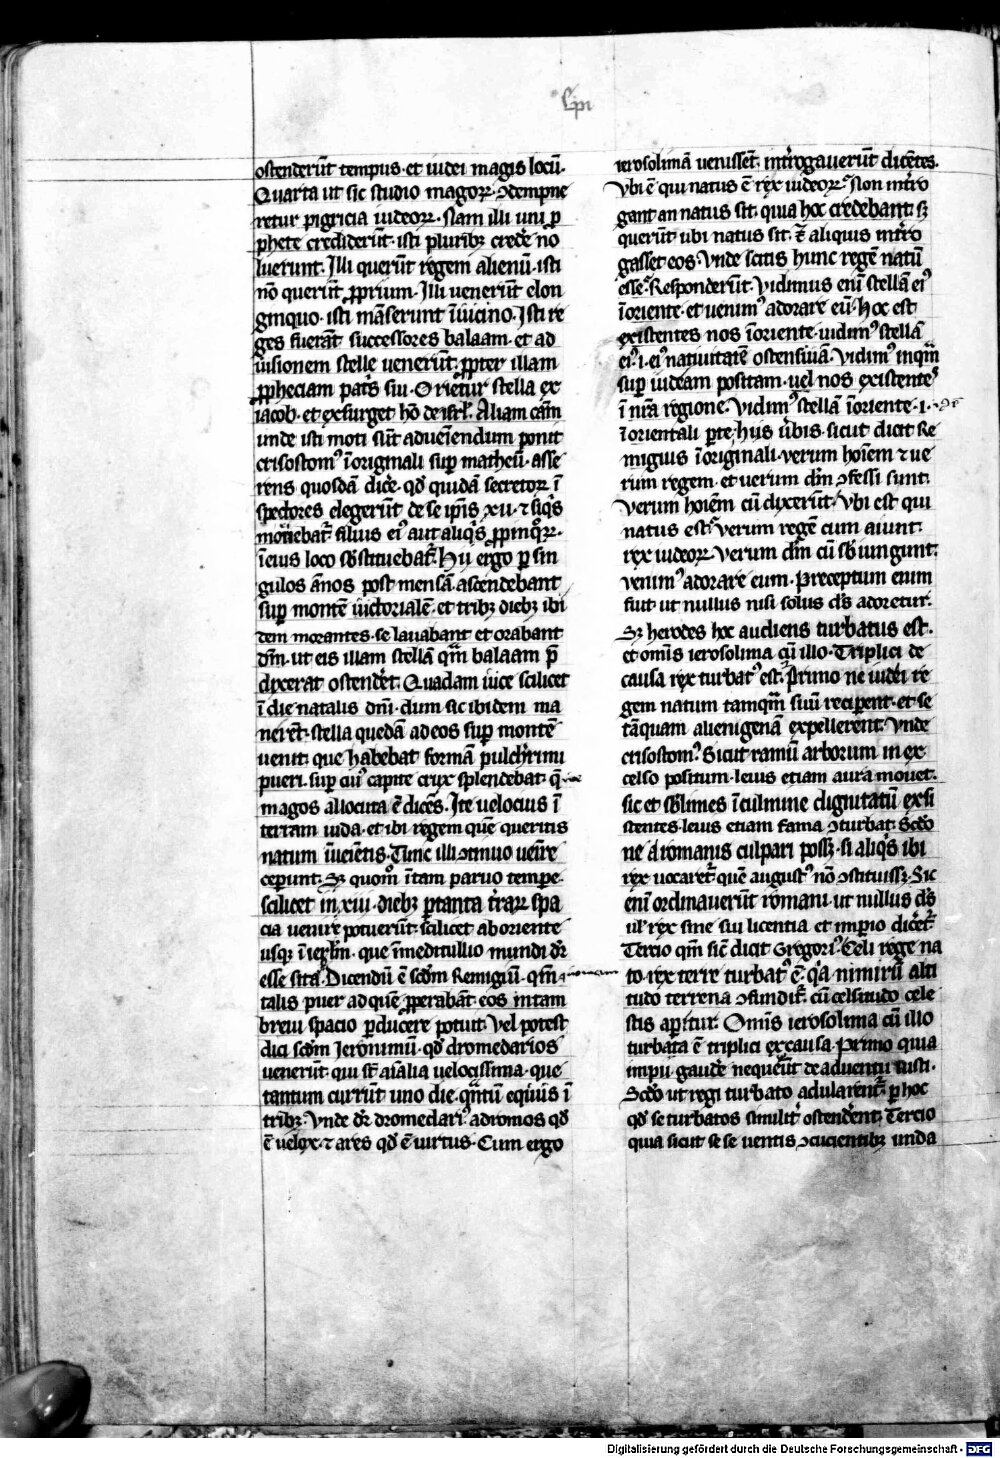 Lpi
ostenderūt tempus · et iudei magis locū ·
Quarta ut sic studio magoꝝ · ꝯdempne
retur pigricia iudeoꝝ · Nam illi uni ꝓ
phete crediderūt · isti pluribꝫ crede͛ no
luerunt · Illi querūt regem alienū · isti
nō querūt ꝓprium · Illi uenerūt elon
ginquo · isti māserunt ī uicino · Isti re
ges fuerāt successores balaam · et ad
uisionem stelle uenerūt · ꝓpter illam
ꝓpheciam pat͛s sui · Orietur stella ex
iacob · et exsurget hō de isrl · Aliam cām
unde isti moti sūt adueīendum ponit
crisostomꝰ ī originali suꝑ matheū · asse
rens quosdā dice͛ · qd quidā secretoꝝ ī
spectores elegerūt de se ip̄is xii · ⁊ siqͥs
moriebat͛ filius eiꝰ aut aliqͥs ꝓpinqͦꝝ ·
ī eius loco sb̄stituebat͛ · Hii ergo ꝑ sin
gulos ānos post mensā ascendebant
suꝑ montē uictorialē · et tribꝫ diebꝫ ibi
dem morantes · se lauabant et orabant
dm̄ · ut eis illam stellā qm̄ balaam p̄
dixerat ostende͛t · Quadam uice scilicet
ī die natalis dn̄i · dum sic ibidem ma
nere͛t · stella quedā ad eos suꝑ montē
uenit · que habebat formā pulch͛rimi
pueri · suꝑ cuiꝰ capite crux splendebat · q̄
magos allocuta ē dice͛s · Ite uelocius ī
terram iuda · et ibi regem quē queritis
natum īuēietis · Tunc illi ꝯtinuo uenīre
ceperunt · Sꝫ quomͦ ī tam paruo tempe͛ ·
scilicet in xiii · diebꝫ ꝑ tanta t͛raꝝ spa
cia uenire potuerūt · scilicet ab oriente
usqꝫ ī ierl̄m · que ī meditullio mundi dr̄
esse sita · Dicendū ē scdm Remigiū · qm̄
talis puer ad quē ꝓperabāt · eos in tam
breui spacio ꝑduce͛re potuit · Vel potest
dici scdm Ieronimū · qd dromedarios
uenerūt · qui st̄ aīalia uelocissima · que
tantum currūt uno die · qͣntū equus ī
tribꝫ · Vnde dr̄ dromedariꝰ adromos qd
ē uelox · ⁊ ares qd ē uirtus · Cum ergo
ierosolimā uenissēt · int͛rogauerūt dice͛tes ·
Vbi ē qui natus ē rex iudeoꝝ · Non int͛ro
gant an natus sit · quia hoc credebant · sꝫ
querūt ubi natus sit · Et aliquis int͛ro
gasset eos · Vnde scitis hunc regē natū
esse · Responderūt · Vidimus enī stellā eiꝰ
ī oriente · et uenimꝰ adorare eū · hoc est
existentes nos ī oriente · uidimꝰ stellā
eiꝰ · i · eiꝰ natiuitatē ostensiuā · Vidimꝰ inqͣm
suꝑ iudeam positam · uel nos existenteꝰ
ī nr̄a regione · Vidimꝰ stellā ī oriente · i ·
ī orientali ꝑte · hiis u͛bis · sicut dicit Re
migius ī originali · uerum hoīem ⁊ ue
rum regem · et uerum dm̄ ꝯfessi sunt ·
Verum hoīem cū dixerūt · Vbi est qui
natus est · uerum regē cum aiunt ·
rex iudeoꝝ · uerum dm̄ cū sb̄iungunt ·
Venimꝰ adorare eum · Preceptum enim
fuit · ut nullus nisi solus ds̄ adoretur ·
Sꝫ herodes hoc audiens turbatus est ·
et om̄is ierosolima cū illo · Triplici de
causa rex turbatꝰ est · Primo ne iudei re
gem natum tamqͣm suū reciꝑent · et se
tāquam alienigenā expellerent · Vnde
crisostomꝰ · Sicut ramū arborum in ex
celso positum · leuis etiam aura mouet ·
sic et sb̄limes ī culmine dignitatū exsi
stentes · leuis etiam fama ꝯturbat · Scdo
ne a romanis culpari possꝫ · si aliqͥs ibi
rex uocaret͛ · quē augustꝰ nō ꝯstituissꝫ · Sic
enī ordinauerūt romani · ut nullus ds̄
ul̄ rex sine sui licentia et imꝑio dice͛t͛
Tercio qm̄ sic̄ dicit Gregoriꝰ · Celi rege na
to · rex terre turbatꝰ ē · qͥa nimirū alti
tudo terrena ꝯfundit͛ · cū celsitudo cele
stis aꝑitur · Om̄is ierosolima cū illo
turbata ē triplici ex causa · Primo quia
impii gaude͛ nequeūt de aduentu iusti ·
Scdo ut regi turbato adularent͛ · ꝑ hoc
qd se turbatos similit͛ ostende͛nt · Tercio
quia sicut se se uentis ꝯcucientibꝫ unda